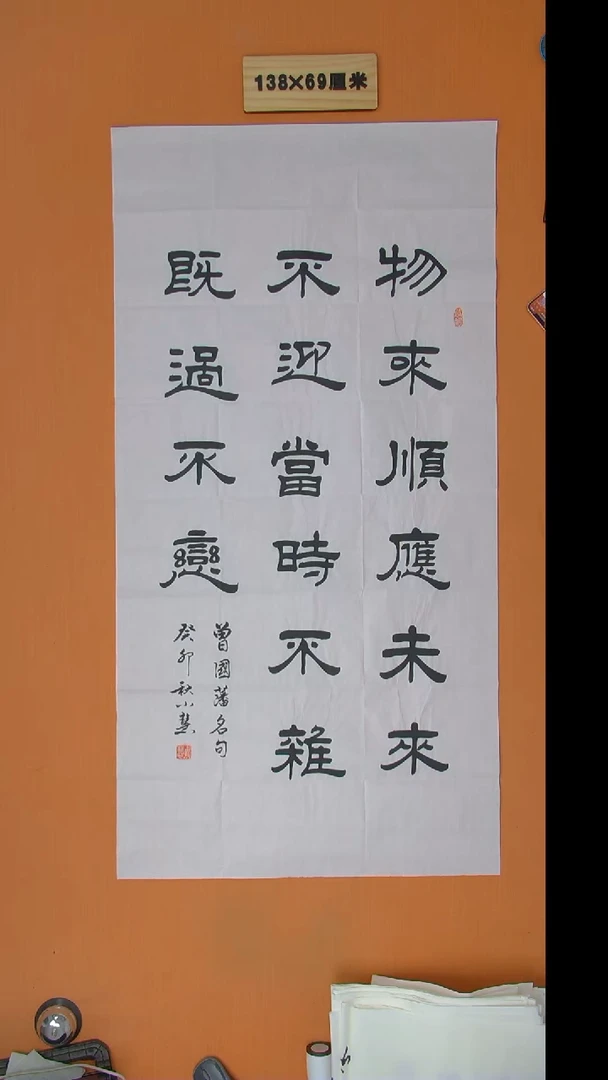 138×69厘米
物來順應未來
不迎當時不雜
既過不戀
曾國藩名句
癸卯秋小慧